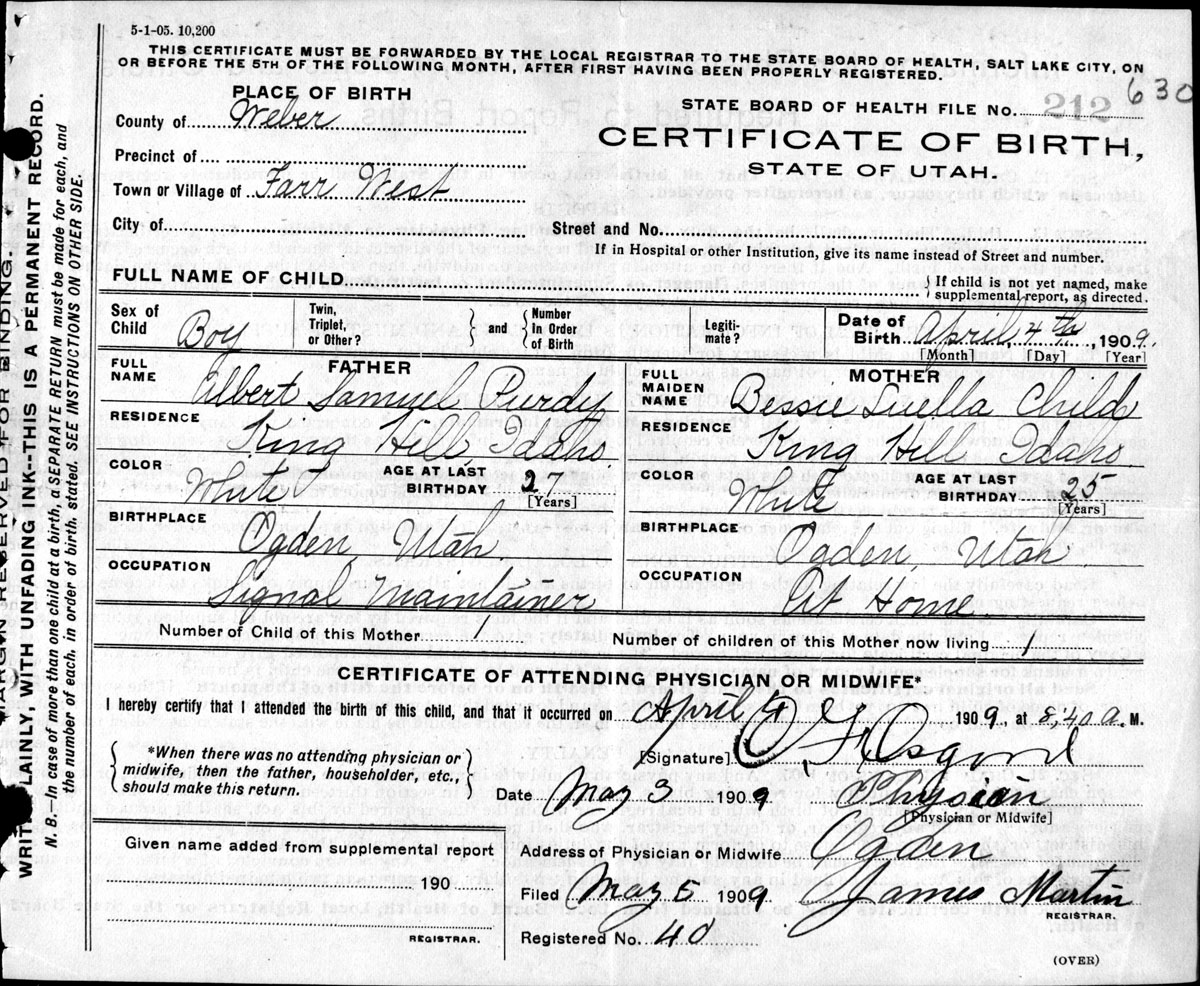 5-1-05. 10,200
THIS CERTIFICATE MUST BE FORWARDED BY THE LOCAL REGISTRAR TO THE STATE BOARD OF HEALTH, SALT LAKE CITY, ON
OR BEFORE THE 5TH OF THE FOLLOWING MONTH, AFTER FIRST HAVING BEEN PROPERLY REGISTERED.
630
PLACE OF BIRTH
STATE BOARD OF HEALTH FILE No. 212
County of Weber
CERTIFICATE OF BIRTH,
Precinct of
STATE OF UTAH.
Town or Village of Farr West
City of
Street and No.
If in Hospital or other Institution, give its name instead of Street and number.
FULL NAME OF CHILD
If child is not yet named, make
supplemental report, as directed.
Sex of Child Boy
Twin, Triplet, or Other?
and Number In Order of Birth
Legiti- mate?
Date of Birth April 4th, 1909.
[Month] [Day] [Year]
FATHER
FULL NAME Albert Samuel Purdy
RESIDENCE King Hill, Idaho
COLOR White AGE AT LAST BIRTHDAY 27
[Years]
BIRTHPLACE Ogden, Utah
OCCUPATION Signal Maintainer
MOTHER
FULL MAIDEN NAME Bessie Luella Child
RESIDENCE King Hill Idaho
COLOR White AGE AT LAST BIRTHDAY 25
[Years]
BIRTHPLACE Ogden, Utah
OCCUPATION At Home
Number of Child of this Mother
Number of children of this Mother now living 1
CERTIFICATE OF ATTENDING PHYSICIAN OR MIDWIFE*
I hereby certify that I attended the birth of this child, and that it occurred on April 4 1909, at 8,40 a. M.
*When there was no attending physician or
midwife, then the father, householder, etc.,
should make this return.
[Signature] O F Osgood
Date May 3 1909 Physician
[Physician or Midwife]
Given name added from supplemental report
190
REGISTRAR.
Address of Physician or Midwife Ogden
Filed May 5 1909 James Martin
REGISTRAR.
Registered No. 40
(OVER)
MARGIN RESERVED FOR BINDING.
WRITE PLAINLY WITH UNFADING INK--THIS IS A PERMANENT RECORD.
N. B.—In case of more than one child at a birth, a SEPARATE RETURN must be made for each, and
the number of each, in order of birth, stated. SEE INSTRUCTIONS ON OTHER SIDE.